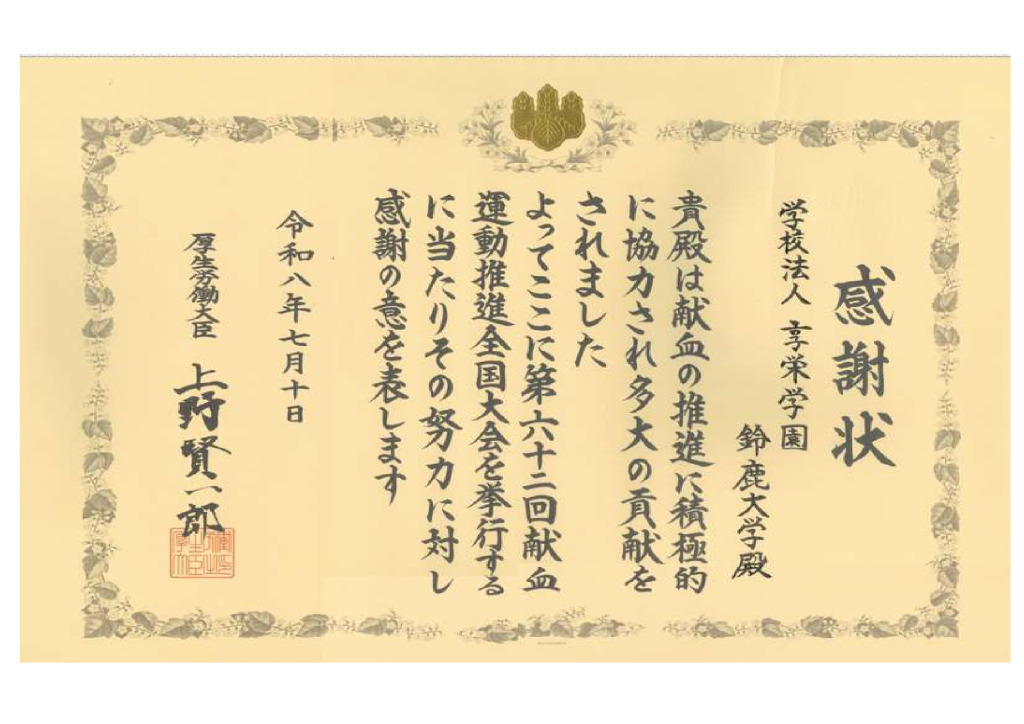 感謝状
学校法人 享栄学園
鈴鹿大学殿
貴殿は献血の推進に積極的
に協力され多大の貢献を
されました
よってここに第六十二回献血
運動推進全国大会を挙行する
に当たりその努力に対し
感謝の意を表します
令和八年七月十日
厚生労働大臣 上野賢一郎